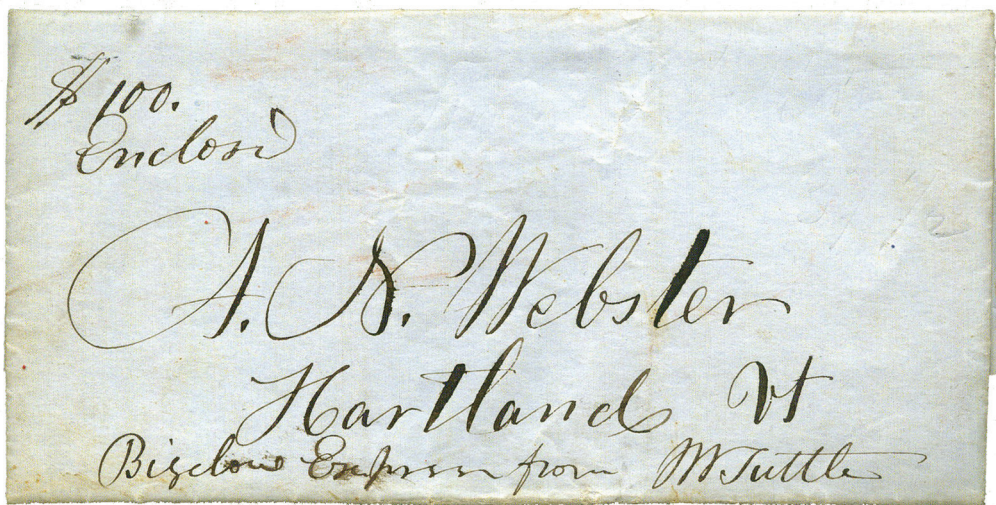 $100.
Enclosd
A. N. Webster
Hartland Vt
Bigelows Express from W Tuttle